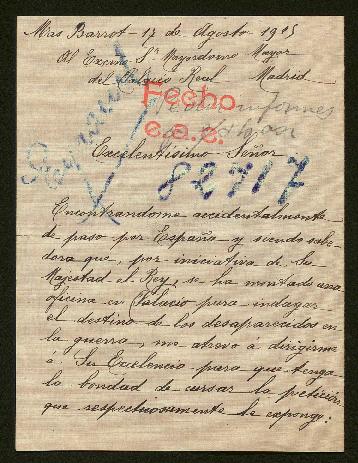 Mas Barrot - 17 de Agosto 1915
Al Excmo. Sr Mayordomo Mayor
del Palacio Real Madrid
Fecho
Pedir informes
c.a.c.
Excelentísimo Señor
82717
Encontrandome accidentalmente
de paso por España y siendo sabe-
dora que, por iniciativa de Su
Majestad el Rey, se ha montado una
oficina en Palacio para indagar
el destino de los desaparecidos en
la guerra, me atrevo á dirigirme
á Su Excelencia para que tenga
la bondad de cursar la petición
que respetuosamente le expongo: